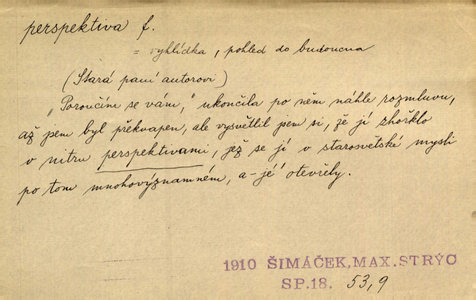 perspektiva f.
= vyhlídka, pohled do budoucna
(Stará paní autorovi)
"Poroučím se vám," ukončila po něm náhle rozmluvu,
až jsem byl překvapen, ale vysvětlil jsem si, že jí zhořklo
v nitru perspektivami, jež se jí v starosvětské mysli
po tom mnohovýznamném, a-jé" otevřely.
1910 ŠIMÁČEK, MAX. STRÝC
SP.18. 53,9